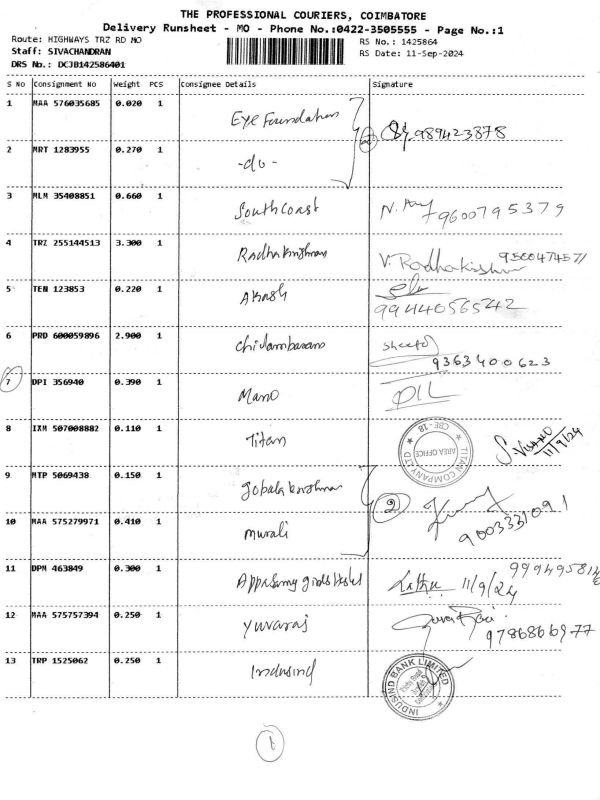 THE PROFESSIONAL COURIERS, COIMBATORE
Delivery Runsheet - MO - Phone No.:0422-3505555 - Page No.:1
Route: HIGHWAYS TRZ RD MO
RS No.: 1425864
Staff: SIVACHANDRAN
RS Date: 11-Sep-2024
DRS No.: DCJB142586401
S No Consignment No Weight PCS Consignee Details Signature
1 MAA 576035685 0.020 1 Eye Foundation 989423878
2 MRT 1283955 0.270 1 -do-
3 MLM 35408851 0.660 1 Southcoast 9600795379
4 TRZ 255144513 3.300 1 Radhakrishnan V. Radhakrishnan
5 TEN 123853 0.220 1 Akash
99440565242
6 PRD 600059896 2.900 1 Chidambaram
9363400623
7 DPI 356940 0.390 1 Mano
8 IXM 507008882 0.110 1 Titan TITAN COMPANY LTD AREA OFFICE CBE-18 11/9/24
9 MTP 5069438 0.150 1 gobalakrishnan 2
10 MAA 575279971 0.410 1 murali 9003331091
11 DPM 463849 0.300 1 Appasamy girls Hostel Latha 11/9/24
12 MAA 575757394 0.250 1 yuvaraj
9786866977
13 TRP 1525062 0.250 1 Indusind INDUSIND BANK LIMITED
1